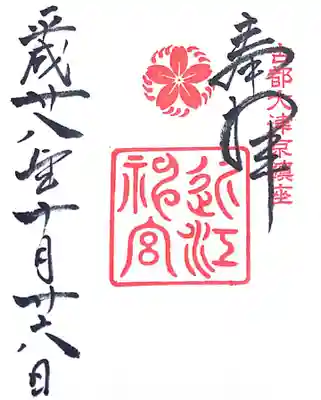 奉拝
古都大津京鎮座
近江
神宮
平成廿八年十月廿六日